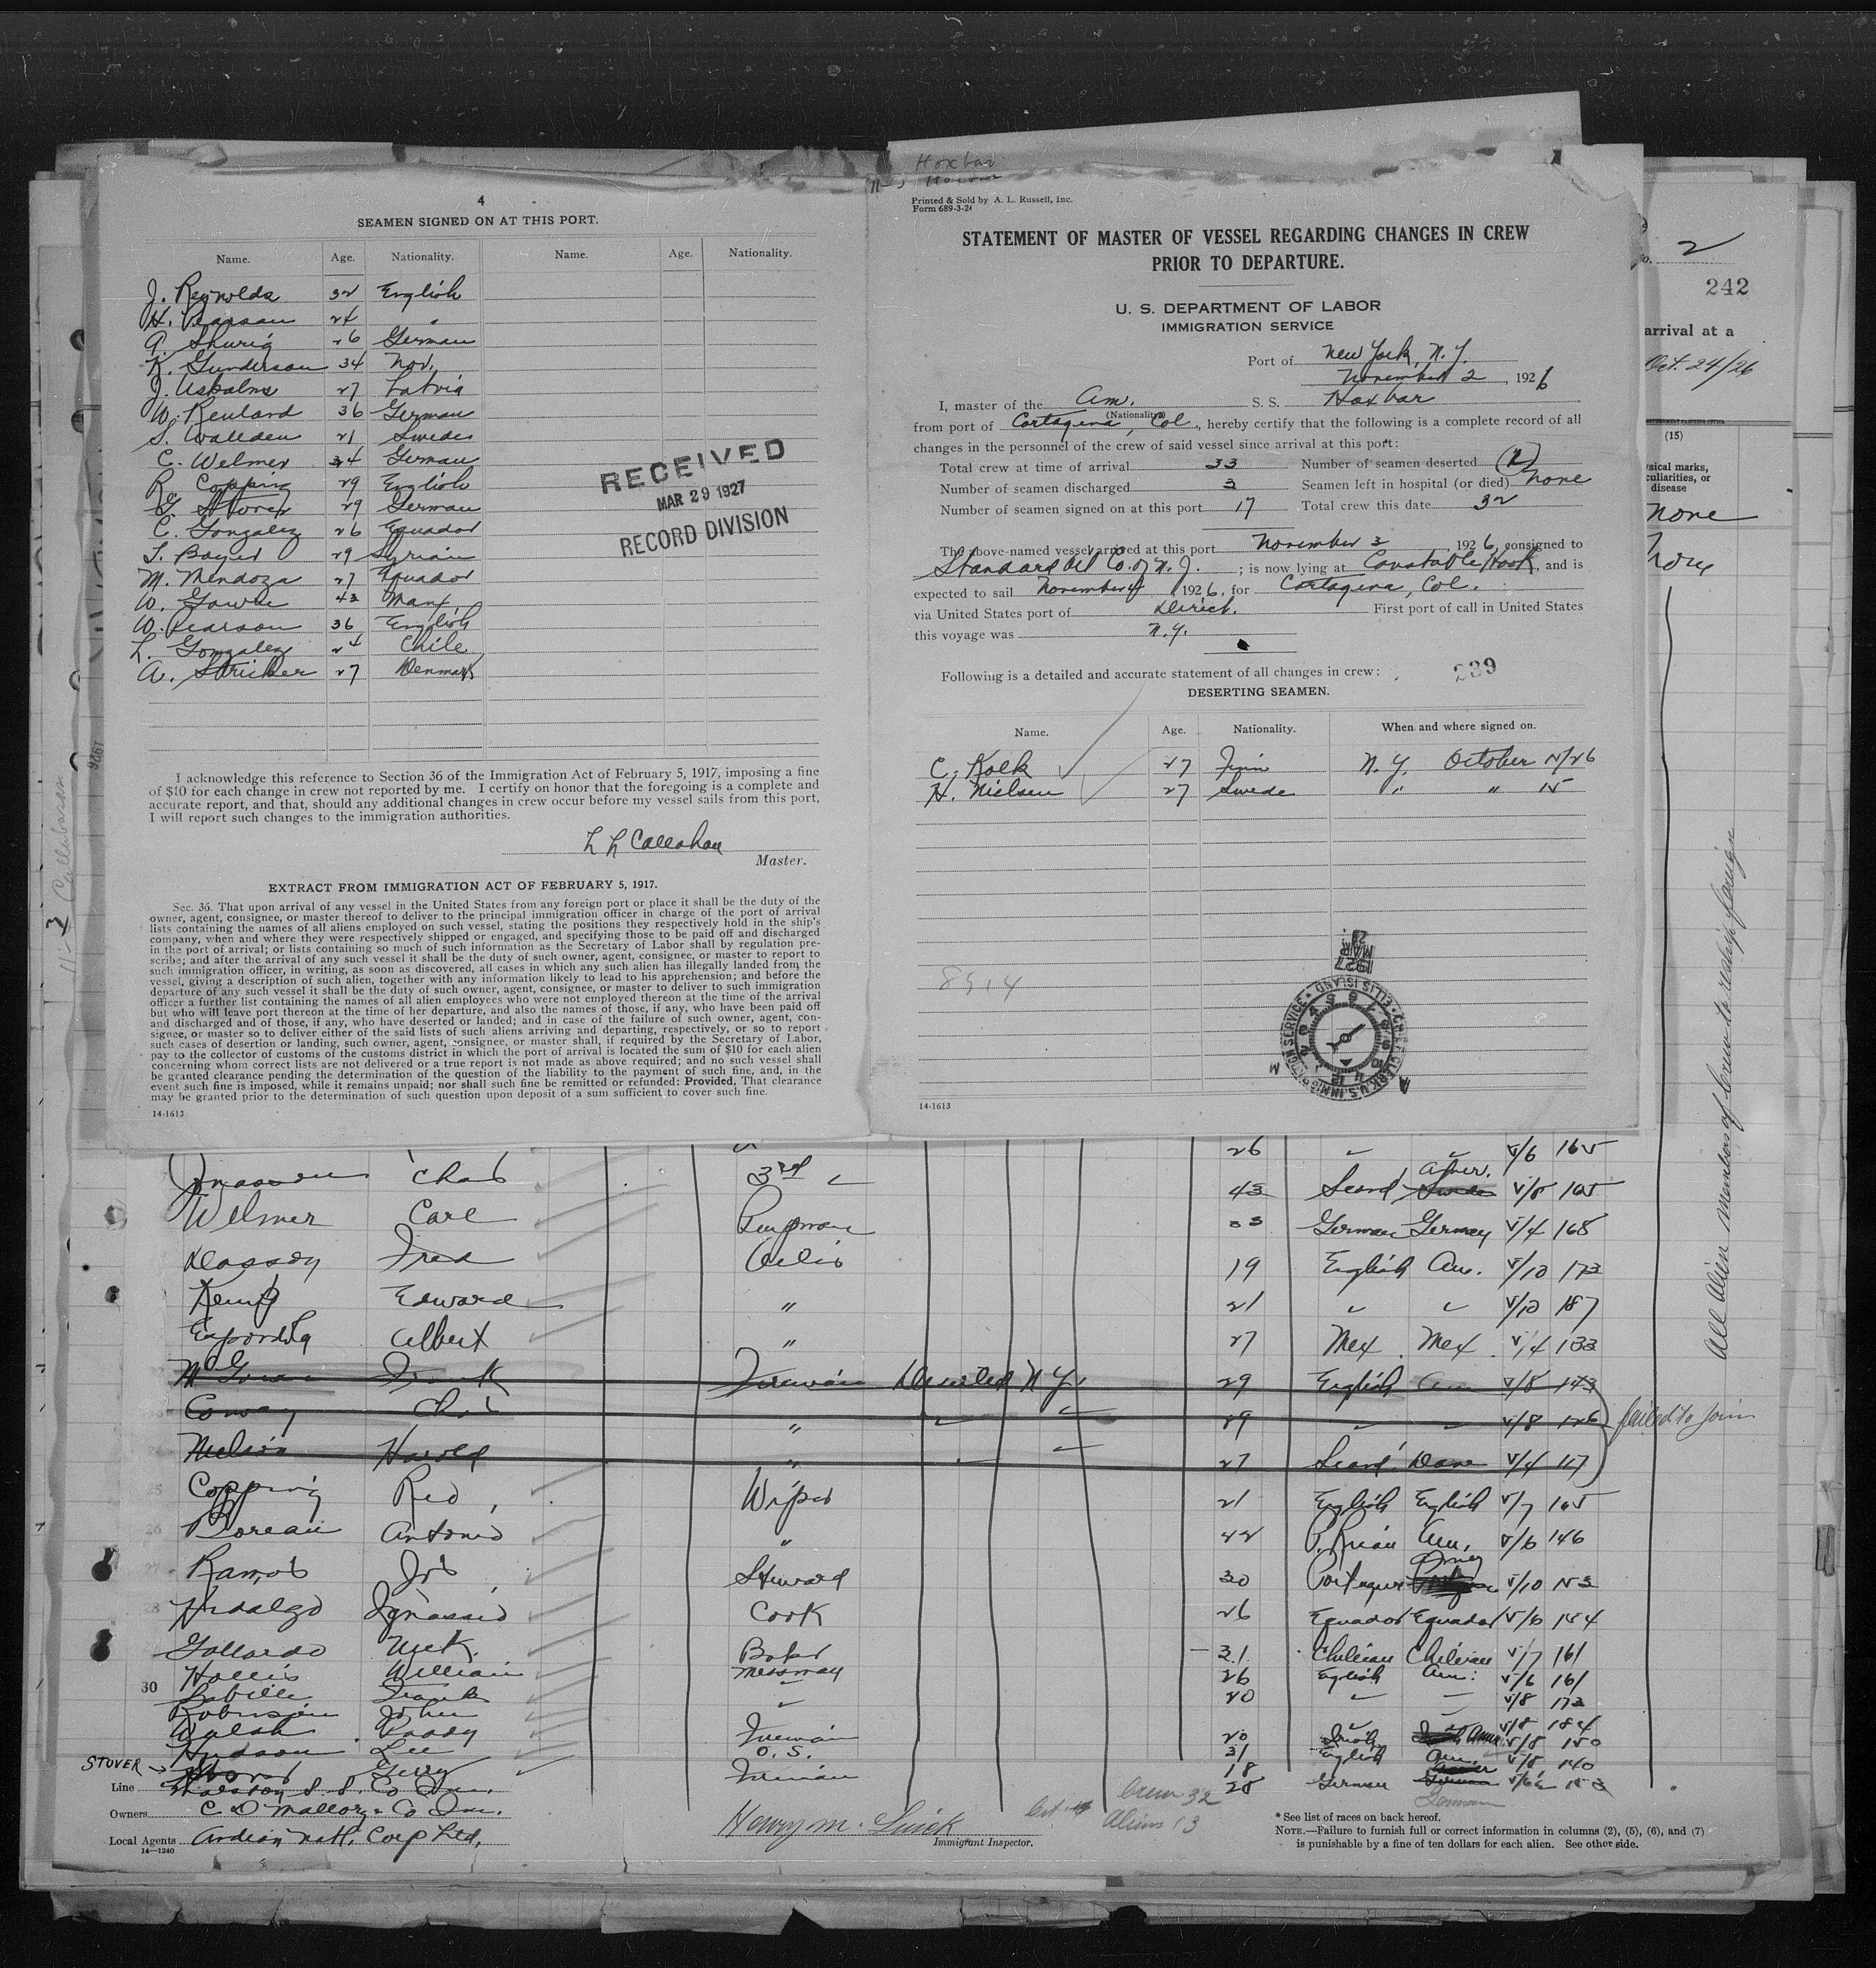 4
SEAMEN SIGNED ON AT THIS PORT.
Name. Age. Nationality. Name. Age. Nationality.
J. Reynolds 32 English
H. Pearson 24 "
26 German
K. Gunderson 34 Nor.
27 Latvia
W. 36 German
S. Wallden 21 Swedes
C. Welmer 34 German
Re. Copping 29 English
G. Stover 29 German
C. Gonzalez 26 Equador
29 Syrian
M. Mendoza 27 Equador
W. 43 Manx.
W. Pearson 36 English
L. Gonzalez 24 Chile
A. Stricker 27 Denmark
RECEIVED
MAR 29 1927
RECORD DIVISION
I acknowledge this reference to Section 36 of the Immigration Act of February 5, 1917, imposing a fine
of $10 for each change in crew not reported by me. I certify on honor that the foregoing is a complete and
accurate report, and that, should any additional changes in crew occur before my vessel sails from this port,
I will report such changes to the immigration authorities.
Callahan
Master.
EXTRACT FROM IMMIGRATION ACT OF FEBRUARY 5, 1917.
Sec. 36. That upon arrival of any vessel in the United States from any foreign port or place it shall be the duty of the
owner, agent, consignee, or master thereof to deliver to the principal immigration officer in charge of the port of arrival
lists containing the names of all aliens employed on such vessel, stating the positions they respectively hold in the ship's
company, when and where they were respectively shipped or engaged, and specifying those to be paid off and discharged
in the port of arrival; or lists containing so much of such information as the Secretary of Labor shall by regulation pre-
scribe; and after the arrival of any such vessel it shall be the duty of such owner, agent, consignee, or master to report to
such immigration officer, in writing, as soon as discovered, all cases in which any such alien has illegally landed from the
vessel, giving a description of such alien, together with any information likely to lead to his apprehension; and before the
departure of any such vessel it shall be the duty of such owner, agent, consignee, or master to deliver to such immigration
officer a further list containing the names of all alien employees who were not employed thereon at the time of the arrival
but who will leave port thereon at the time of her departure, and also the names of those, if any, who have been paid off
and discharged and of those, if any, who have deserted or landed; and in case of the failure of such owner, agent, con-
signee, or master so to deliver either of the said lists of such aliens arriving and departing, respectively, or so to report
such cases of desertion or landing, such owner, agent, consignee, or master shall, if required by the Secretary of Labor,
pay to the collector of customs of the customs district in which the port of arrival is located the sum of $10 for each alien
concerning whom correct lists are not delivered or a true report is not made as above required; and no such vessel shall
be granted clearance pending the determination of the question of the liability to the payment of such fine, and, in the
event such fine is imposed, while it remains unpaid; nor shall such fine be remitted or refunded: Provided, That clearance
may be granted prior to the determination of such question upon deposit of a sum sufficient to cover such fine.
14-1613
Hoxbar
Printed & Sold by A. L. Russell, Inc.
Form 689-3-24
STATEMENT OF MASTER OF VESSEL REGARDING CHANGES IN CREW
PRIOR TO DEPARTURE.
U. S. DEPARTMENT OF LABOR
IMMIGRATION SERVICE
Port of New York, N. Y.
November 2, 1926
I, master of the Am. S. S. Hoxbar
(Nationality)
from port of Cartagena, Col., hereby certify that the following is a complete record of all
changes in the personnel of the crew of said vessel since arrival at this port:
Total crew at time of arrival 33 Number of seamen deserted (2)
Number of seamen discharged 3 Seamen left in hospital (or died) none
Number of seamen signed on at this port 17 Total crew this date 32
The above-named vessel arrived at this port November 3 1926, consigned to
Standard Oil Co. of N. J.; is now lying at Constable Hook, and is
expected to sail November 4 1926, for Cartagena, Col.
via United States port of Direct. First port of call in United States
this voyage was N. Y.
Following is a detailed and accurate statement of all changes in crew:
239
DESERTING SEAMEN.
Name. Age. Nationality. When and where signed on.
C. Kolk 27 Finn N. Y. October 12/26
H. Nielsen 27 Swede " " 15
8914
1927 MAR 29
CHIEF CLERK U.S. IMMIGRATION SERVICE ELLIS ISLAND
14-1613
2
242
arrival at a
Oct. 24/26
(15)
none
All Alien members of Crew to reship foreign
26 5/6 165
Chas 3rd 43 Scand Amer. 5/8 165
Welmer Carl Pumpman 33 German Germay 5/4 168
Fred Oiler 19 English Am. 5/10 173
Kemp Edward " 21 5/10 187
Albert " 27 Mex. Mex. 5/4 133
McGowan Frank Fireman Deserted N. Y. 29 English Am 5/8 143
Conway Chas " 29 5/8 126 failed to join
Nelson Harold " 27 Scand. Dane 5/4 117
Copping Red Wiper 21 English English 5/7 165
Moreau Antonio " 42 P. Rican Am. 5/6 146
Ramos Jos Steward 30 Portuguese 5/10 153
Hidalgo Ignassio Cook 26 Equador Equador 5/6 154
Gallardo Nick Baker 31 Chilean Chilean 5/7 161
Hollis William Messman 26 English Am. 5/6 161
30 Frank 20 5/8 173
Robinson John 5/8 184
Walsh Paddy Fireman 20 Irish Amer 5/8 150
Hudson Lee O. S. 31 English Am. 5/8 140
STOVER Stover Gerry Fireman 18 28 German German
Line S. S. Co Inc.
Owners C. D. Mallory & Co Inc.
Local Agents Andian Natl. Corp Ltd.
14—1240
Henry M.
Immigrant Inspector.
Crew 32
Aliens 13
* See list of races on back hereof.
NOTE.—Failure to furnish full or correct information in columns (2), (5), (6), and (7)
is punishable by a fine of ten dollars for each alien. See other side.